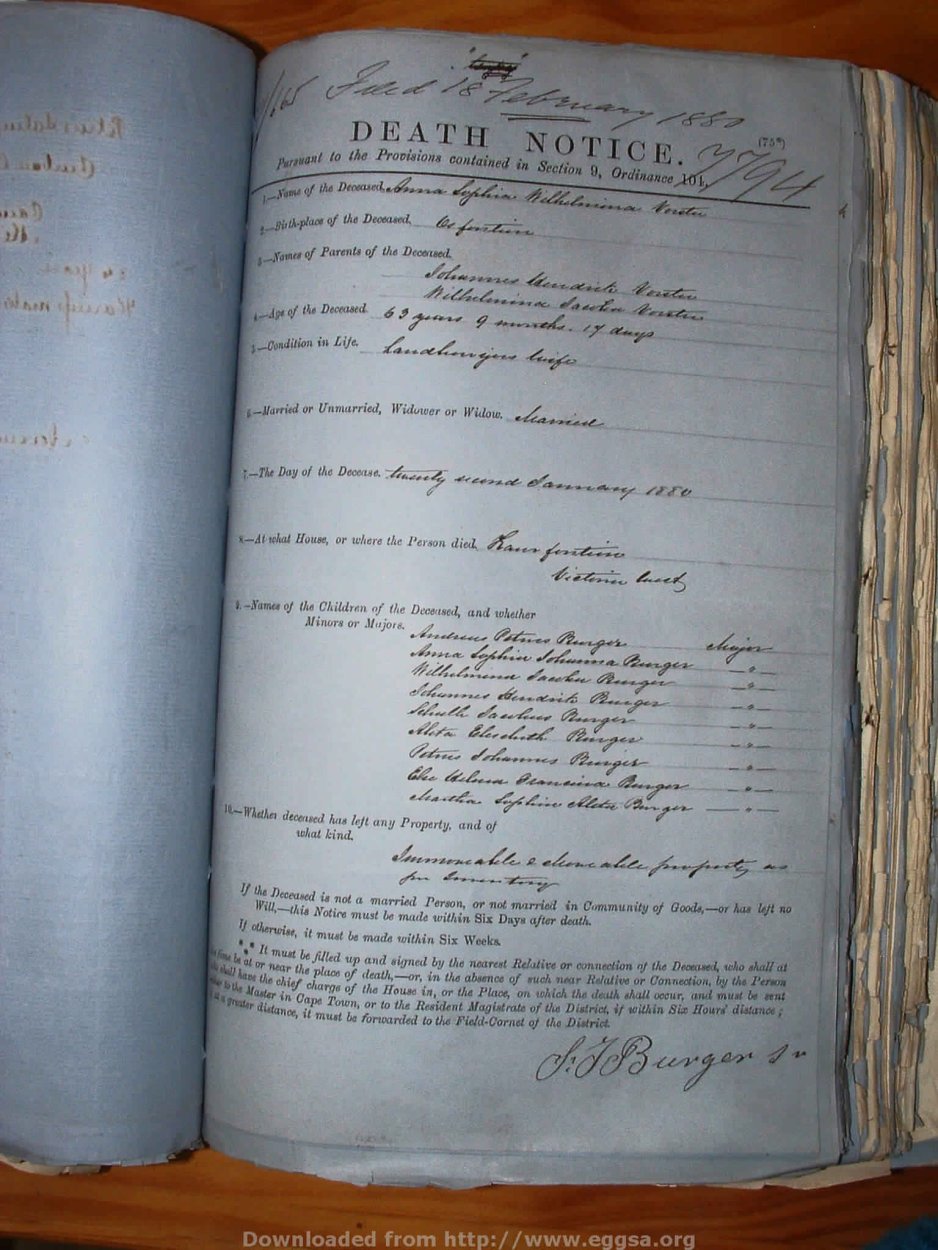 Filed 18 February 1880
DEATH NOTICE.
(75*)
7794
Pursuant to the Provisions contained in Section 9, Ordinance 104,
1—Name of the Deceased. Anna Sophia Wilhelmina Vorster
2—Birth-place of the Deceased. fontein
3—Names of Parents of the Deceased.
Johannes Hendrik Vorster
Wilhelmina Jacoba Vorster
4—Age of the Deceased. 63 years 9 months. 17 days
5—Condition in Life. Landbouwers wife
6—Married or Unmarried, Widower or Widow. Married
7—The Day of the Decease. twenty second January 1880
8—At what House, or where the Person died. fontein
Victoria West
9.—Names of the Children of the Deceased, and whether
Minors or Majors.
Andreas Petrus Burger Major
Anna Sophia Johanna Burger — " —
Wilhelmina Jacoba Burger — " —
Johannes Hendrik Burger — " —
Schalk Jacobus Burger — " —
Aleta Elisabeth Burger — " —
Petrus Johannes Burger — " —
Else Helena Francina Burger — " —
Martha Sophia Aleta Burger — " —
10.—Whether deceased has left any Property, and of
what kind.
Immoveable & Moveable property as
per Inventory
If the Deceased is not a married Person, or not married in Community of Goods,—or has left no
Will,—this Notice must be made within Six Days after death.
If otherwise, it must be made within Six Weeks.
*** It must be filled up and signed by the nearest Relative or connection of the Deceased, who shall at
time be at or near the place of death,—or, in the absence of such near Relative or Connection, by the Person
shall have the chief charge of the House in, or the Place, on which the death shall occur, and must be sent
to the Master in Cape Town, or to the Resident Magistrate of the District, if within Six Hours' distance;
at a greater distance, it must be forwarded to the Field-Cornet of the District.
Burger Sr
Downloaded from http://www.eggsa.org